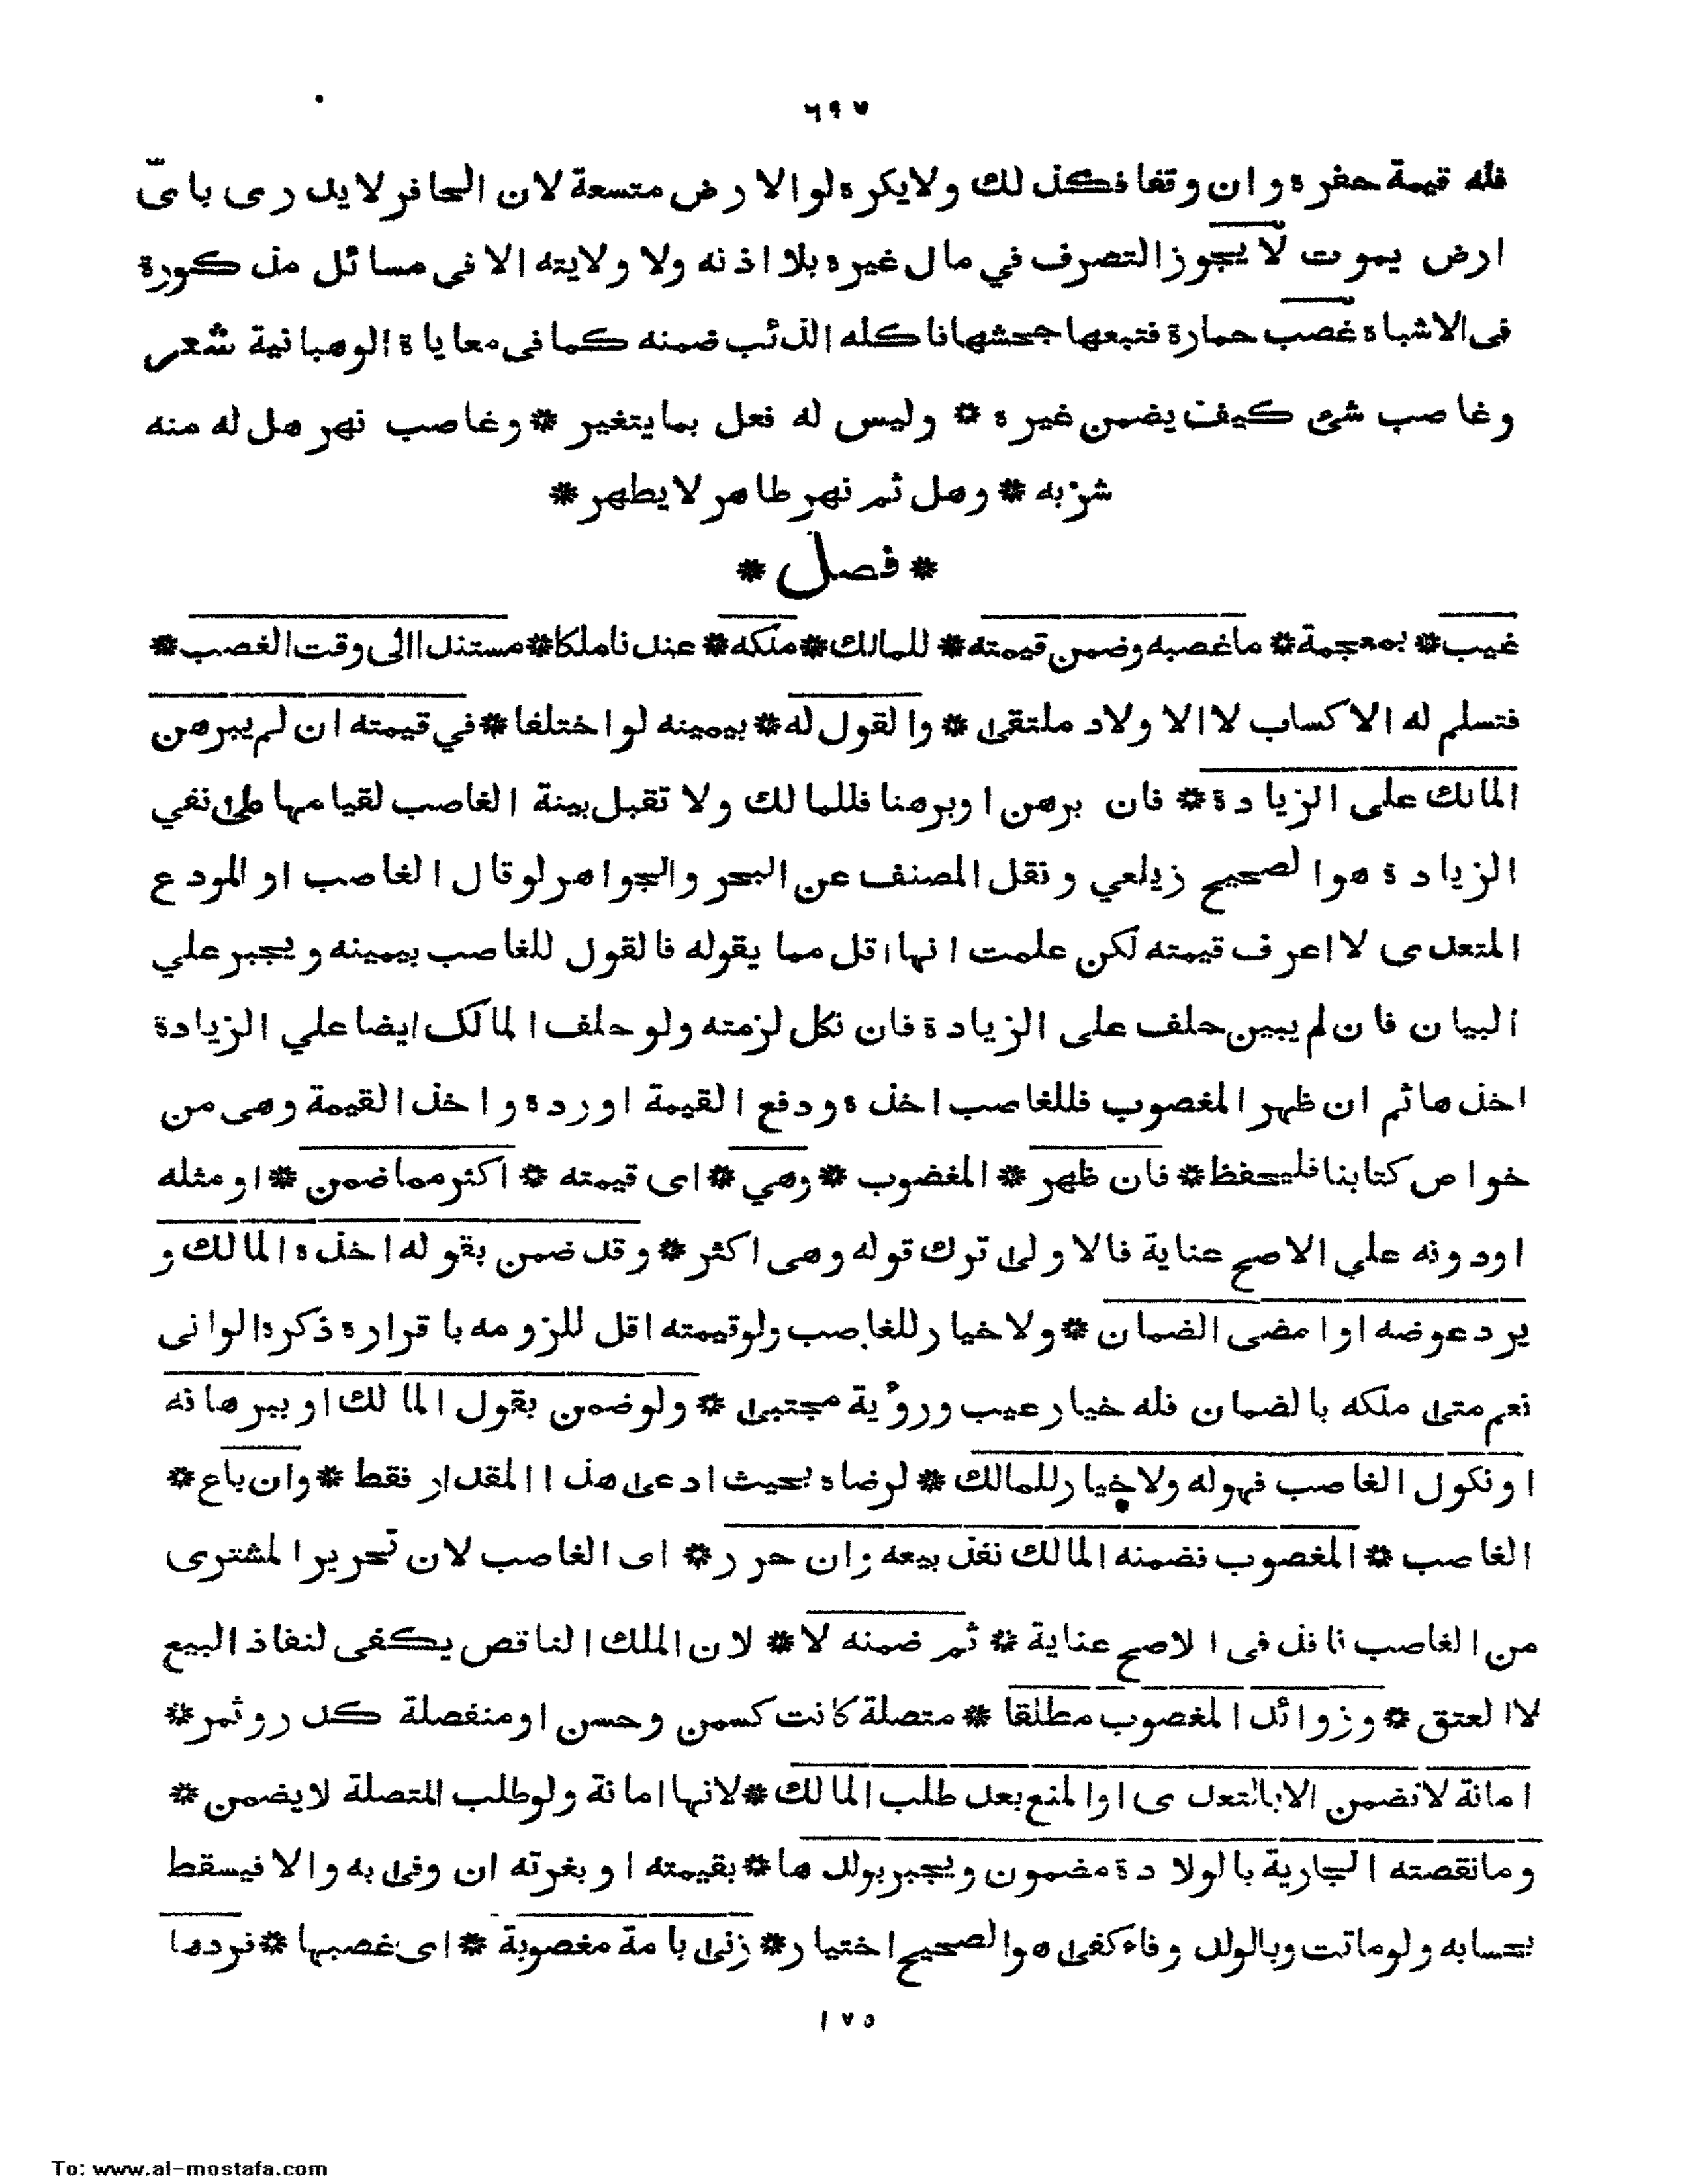 ٦٩٧
فله قيمة حفره وان وقفا فكذلك ولايكره لوالارض متسعة لان الحافر لايدرى باىّ
ارض يموت لايجوز التصرف في مال غيره بلا اذنه ولا ولايته الا فى مسائل مذكورة
فى الاشباه غصب حمارة فتبعها جحشها فاكله الذئب ضمنه كما فى معاياة الوهبانية شعر
وغاصب شئ كيف يضمن غيره * وليس له فعل بما يتغير * وغاصب نهر هل له منه
شربه * وهل ثم نهر طاهر لايطهر *
* فصل *
غيب * بمعجمة * ماغصبه وضمن قيمته * للمالك * ملكه * عندنا ملكا * مستندا الى وقت الغصب *
فتسلم له الاكساب لا الاولاد ملتقى * والقول له * بيمينه لو اختلفا * في قيمته ان لم يبرهن
المالك على الزيادة * فان برهن اوبرهنا فللمالك ولا تقبل بينة الغاصب لقيامها على نفي
الزيادة هوالصحيح زيلعي ونقل المصنف عن البحر والجواهر لوقال الغاصب او المودع
المتعدى لااعرف قيمته لكن علمت انها اقل مما يقوله فالقول للغاصب بيمينه ويجبر علي
البيان فان لم يبين حلف على الزيادة فان نكل لزمته ولو حلف المالك ايضا علي الزيادة
اخذها ثم ان ظهر المغصوب فللغاصب اخذه ودفع القيمة اورده واخذ القيمة وهى من
خواص كتابنا فليحفظ * فان ظهر * المغضوب * وهي * اى قيمته * اكثرمماضمن * اومثله
اودونه علي الاصح عناية فالاولى ترك قوله وهى اكثر * وقد ضمن بقوله اخذه المالك و
يرد عوضه او امضى الضمان * ولاخيار للغاصب ولوقيمته اقل للزومه باقراره ذكره الوانى
نعم متى ملكه بالضمان فله خيار عيب ورؤية مجتبى * ولوضمن بقول المالك اوببرهانه
اونكول الغاصب فهوله ولاخيار للمالك * لرضاه بحيث ادعى هذا المقدار فقط * وان باع *
الغاصب * المغصوب فضمنه المالك نفذ بيعه وان حرر * اى الغاصب لان تحرير المشترى
من الغاصب نافذ فى الاصح عناية * ثم ضمنه لا * لان الملك الناقص يكفى لنفاذ البيع
لاالعتق * وزوائد المغصوب مطلقا * متصلة كانت كسمن وحسن اومنفصلة كدر وثمر *
امانة لاتضمن الابالتعدى اوالمنع بعد طلب المالك * لانها امانة ولوطلب المتصلة لايضمن *
ومانقصته الجارية بالولادة مضمون ويجبر بولدها * بقيمته اوبغرته ان وفى به والا فيسقط
بحسابه ولوماتت وبالولد وفاء كفى هوالصحيح اختيار * زنى بامة مغصوبة * اى غصبها * فردها
١٧٥
To: www.al-mostafa.com